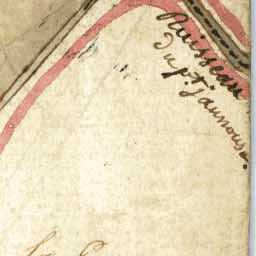 Ruisseau
du pt. jaunouse.